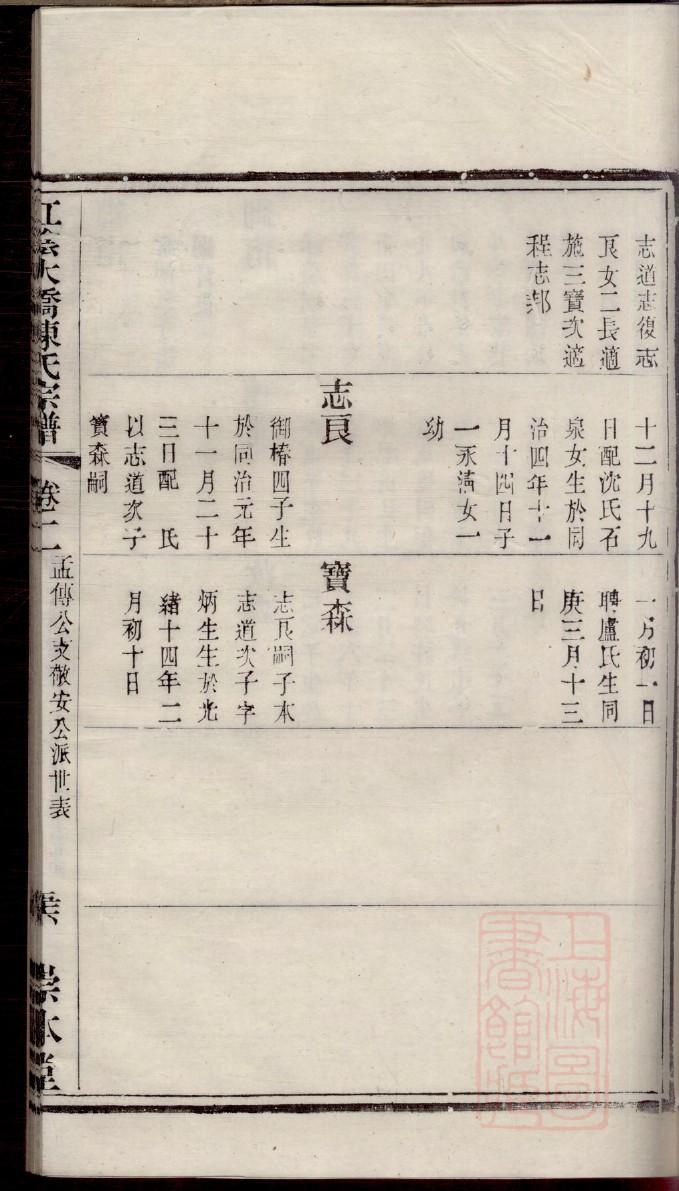 志道志復志
良女二長適
施三寶次適
程志邦
十二月十九
日配沈氏石
泉女生於同
治四年十一
月十四日子
一永滿女一
幼
志良
御椿四子生
於同治元年
十一月二十
三日配 氏
以志道次子
寶森嗣
一月初一日
聘盧氏生同
庚三月十三
日
寶森
志良嗣子本
志道次子字
炳生生於光
緒十四年二
月初十日
江陰大橋陳氏宗譜 卷二 孟傳公支敬安公派世表
崇本堂
上海圖書館藏